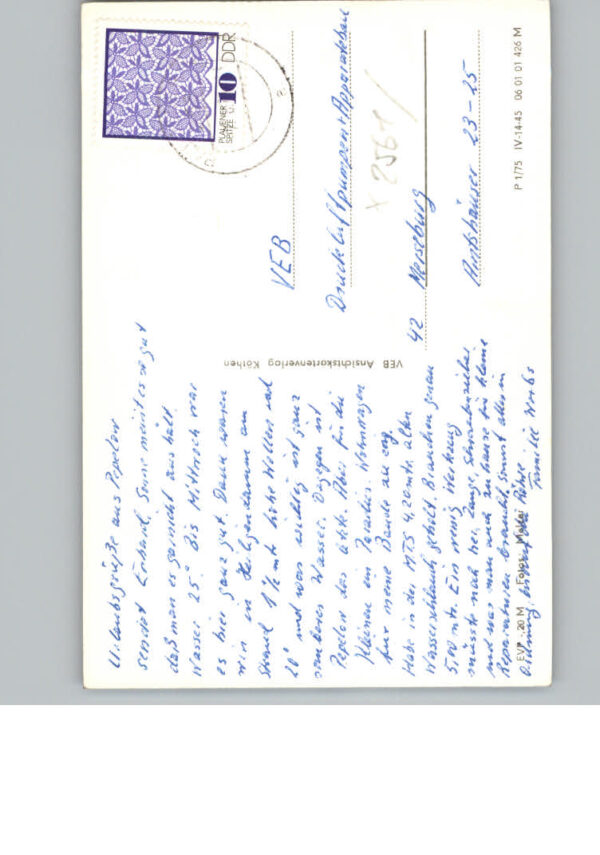 Urlaubsgrüße aus Pepelow
sendet Erhard. Sonne meint es so gut
daß man es garnicht aus hält.
Wasser 25° Bis Mittwoch war
es hier ganz gut. Dann waren
wir in Heiligendamm am
Strand 1½ mtr hohe Wellen und
20° und was wichtig ist ganz
sauberes Wasser. Dagegen ist
Pepelow das letzte. Aber für die
Kleinen ein Paradies. Wohnwagen
für meine Bande zu eng.
Habe in der MTS 4,20 mtr alten
Wasserschlauch geholt. Brauchen genau
5,00 mtr. Ein wenig Werkzeug
müsste noch her. Zange, Schraubenzieher
und was man auch zu hause für kleine
Reparaturen braucht, sonst alles in
Ordnung.
Familie
VEB
Druckluftpumpen + Apparatebau
42 Merseburg
Amtshäuser 23-25
x 2561/
PLAUENER
SPITZE
10
DDR
VEB Ansichtskartenverlag Köthen
P 1/75 IV-14-45 06 01 01 426 M
EVP -,20 M Foto: